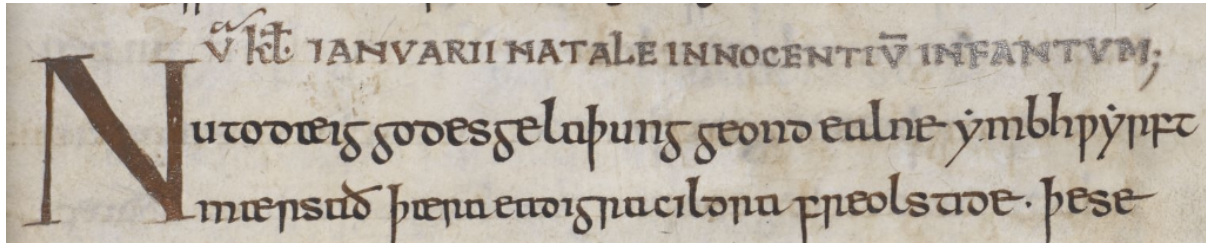 V kł IANVARII NATALE INNOCENTIV̄ INFANTVM;
Nu todæig godes gelaþung geond ealne ẏmbhƿẏrft
mærsað þæra eadigra cildra freolstide· þese